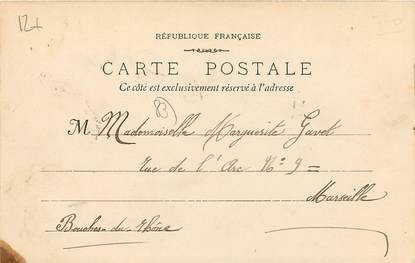 RÉPUBLIQUE FRANÇAISE
CARTE POSTALE
Ce côté est exclusivement réservé à l'adresse
M. Mademoiselle Marguerite Gavet
Rue de l'Arc Nº 9 =
Marseille
Bouches-du-Rhône